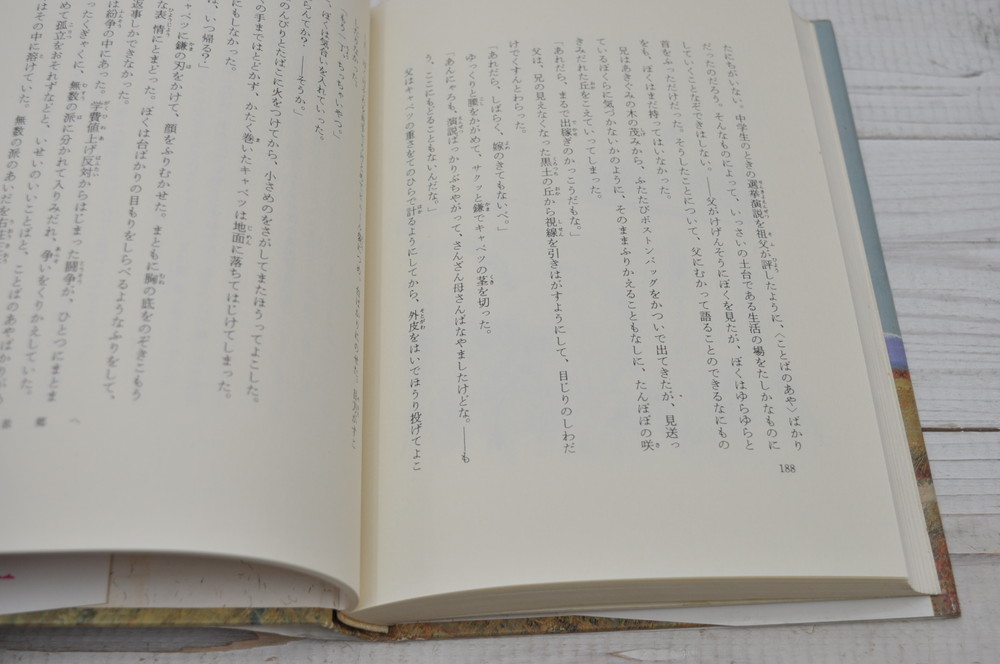 たにちがいない。中学生のときの選挙演説を祖父が評したように、〈ことばのあや〉ばかり
だったのだろう。そんなものによって、いっさいの土台である生活の場をたしかなものに
していくことなどできはしない。――父がけげんそうにぼくを見たが、ぼくはゆらゆらと
首をふっただけだった。そうしたことについて、父にむかって語ることのできるなにもの
をも、ぼくはまだ持ってはいなかった。
兄はあきぐみの木の茂みから、ふたたびボストンバッグをかついで出てきたが、見送っ
ているぼくらに気づかないかのように、そのままふりかえることもなしに、たんぽぽの咲
きみだれた丘をこえていってしまった。
「あれだら、まるで出稼ぎのかっこうだもな。」
父は、兄の見えなくなった黒土の丘から視線を引きはがすようにして、目じりのしわだ
けでくすんとわらった。
「あれだら、しばらく、嫁のきてもないべ。」
ゆっくりと腰をかがめて、サクッと鎌でキャベツの茎を切った。
「あんにゃろも、演説ばっかりぶちやがって、さんざん母さんばなやましたけどな。――も
う、ここにもどることもないんだな。」
父はキャベツの重さをてのひらで計るようにしてから、外皮をはいでほうり投げてよこ
188
らんてか？――そうか。」
のんびりとたばこに火をつけてから、小さめのをさがしてまたほうってよこした。
の手まではとどかず、かたく巻いたキャベツは地面に落てはじけてしまった。
にもしなかった。
、いつ帰る？」
ャベツに鎌の刃をかけて、顔をふりむかせた。まともに胸の底をのぞきこもう
な表情にとまどった。ぼくは台ばかりの目もりをしらべるようなふりをして、
返事しかできなかった。
は紛争の中にあった。学費値上げ反対からはじまった闘争が、ひとつにまとま
ったくぎゃくに、無数の派に分かれて入りみだれ、争いをくりかえしていた。
めて孤立をおそれずなどと、いせいのいいことばと、ことばのあやばかりが
はその中に溶けていた。無数の派のあいだを右往